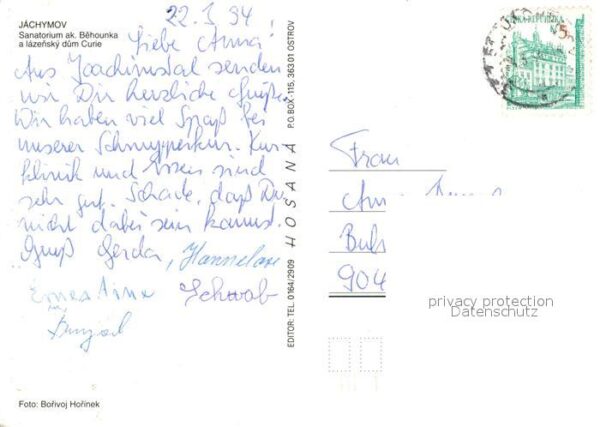 JÁCHYMOV
Sanatorium ak. Běhounka
a lázeňský dům Curie
22.3.94
Liebe Anna!
Aus Joachimstal senden
wir Dir herzliche Grüße.
Wir haben viel Spaß bei
unserer Schnupperkur. Kur-
klinik und Essen sind
sehr gut. Schade, daß Du
nicht dabei sein kannst.
Gruß Gerda, Hannelore
Schwab
Foto: Bořivoj Hořínek
EDITOR: TEL. 0164/2909 HOŠANA P.O.BOX 115, 363 01 OSTROV
Frau
904
privacy protection
Datenschutz